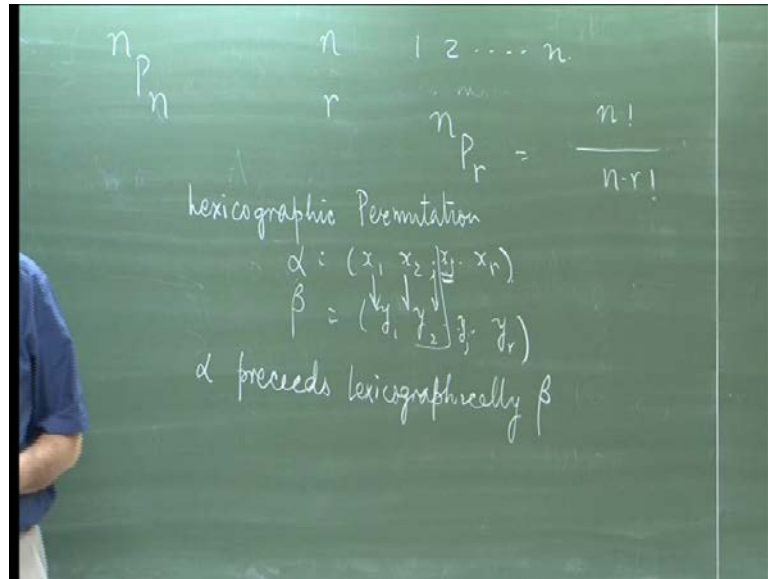 nPn n 1 2 .... n.
r nPr = n! / n-r!
Lexicographic Permutation
α = (x1 x2 . xj . xr)
β = (y1 y2 . yj . yr)
α preceeds lexicographically β